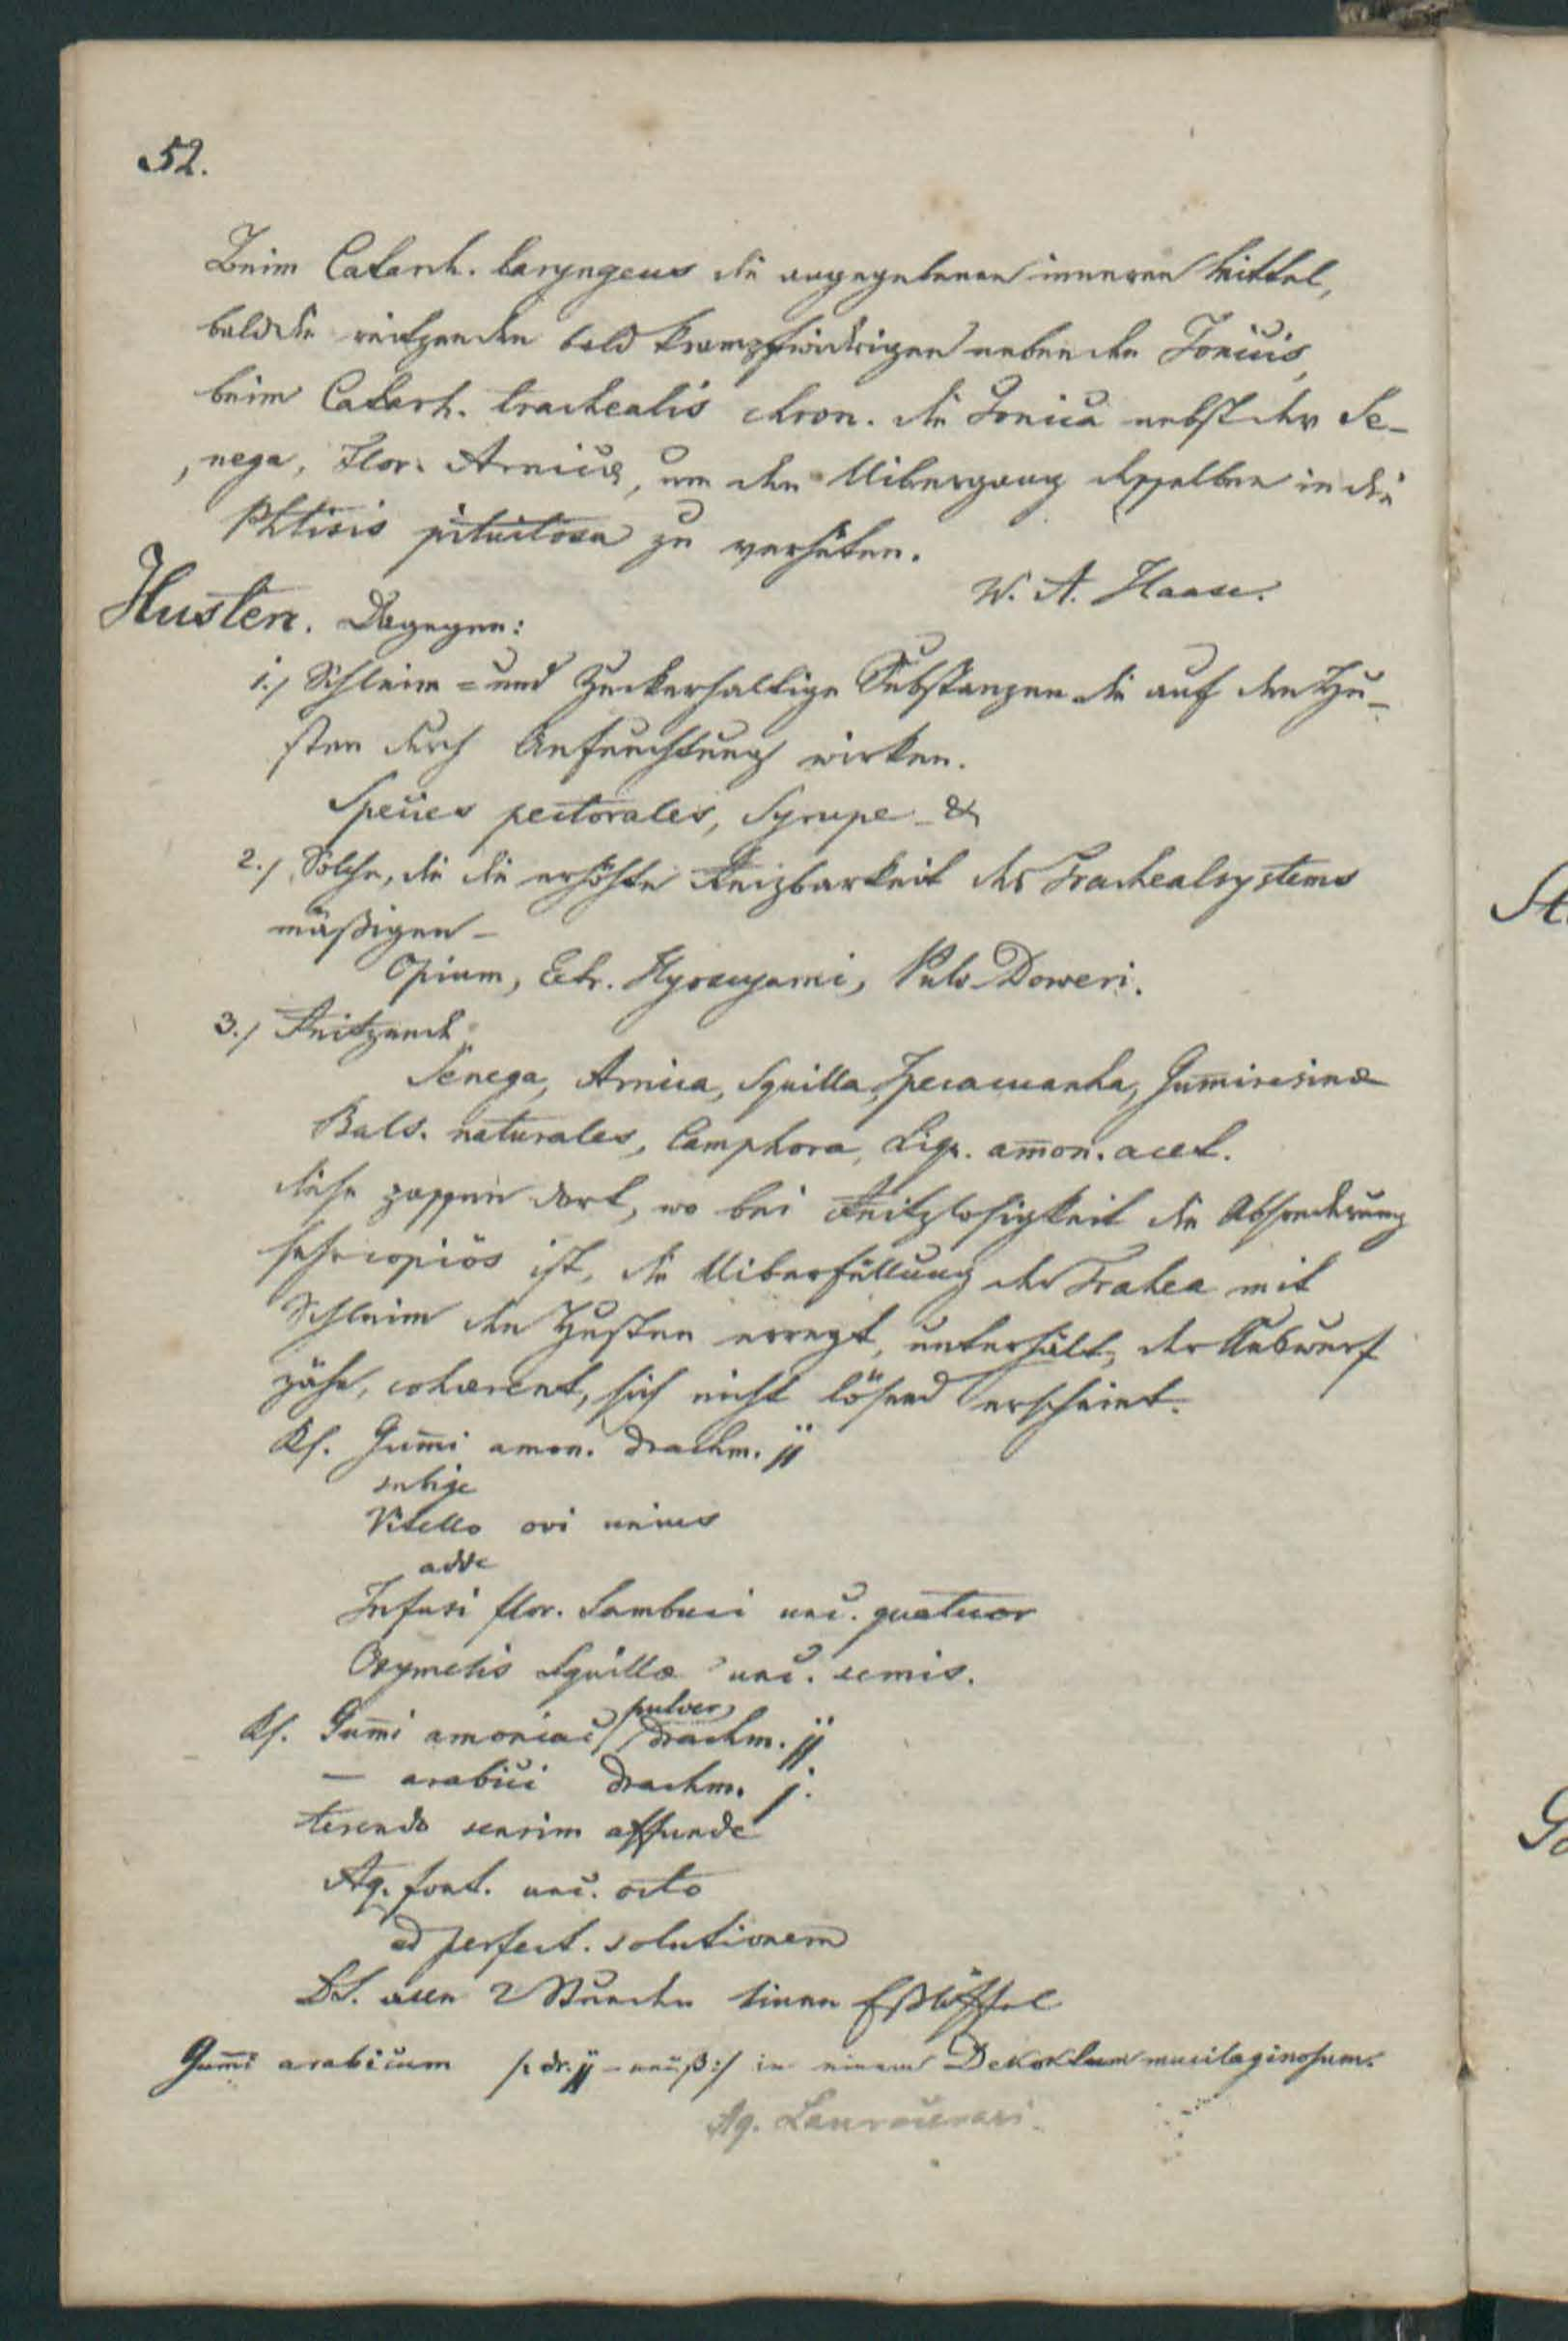 52.
Beim Catarrh. laryngeus die angegebenen inneren Mittel,
bald die reitzenden bald krampfwidrigen neben den Tonicis,
beim Catarrh. trachealis chron. die Tonica nebst der Se-
nega, Flor. Arnicæ, um den Uibergang desselben in die
Phtisis pituitosa zu verhüten.
W. A. Haase.
Husten. Dagegen:
1./ Schleim= und Zuckerhaltige Substanzen die auf den Hu-
sten durch Anfeuchtung wirken.
Species pectorales, Syrupe &
2./ Solche, die die erhöhte Reizbarkeit des Trachealsystems
mäßigen –
Opium, Extr. Hyoscyami, Pulv. Doweri.
3./ Reitzend
Senega, Arnica, Squilla, Ipecacuanha, Gum̅iresinæ
Bals. naturales, Camphora, Liqr. am̅on. acet.
diese passen dort, wo bei Reitzlosigkeit die Absonderung
sehr copiös ist, die Uiberfüllung der Trahea mit
Schleim den Husten erregt, unterhält, der Auswurf
zähe, cohærent, sich nicht lösend erscheint.
Rf. Gum̅i amon. drachm. jj
subige
Vitello ovi unius
adde
Infusi flor. Sambuci unc. quatuor
Oxymelis Squillæ unc. semis.
Rf. Gum̅i amoniac pulver drachm. jj
— arabici drachm. j.
terendo sensim affunde
Aq. font. unc. octo
ad perfect. solutionem
DS. alle 2 Stunden einen Eßlöffel
Gum̅i arabicum /: dr. jj – unc ß :/ in einem Dekoktum mucilaginosum.
Aq. Laurocerasi.